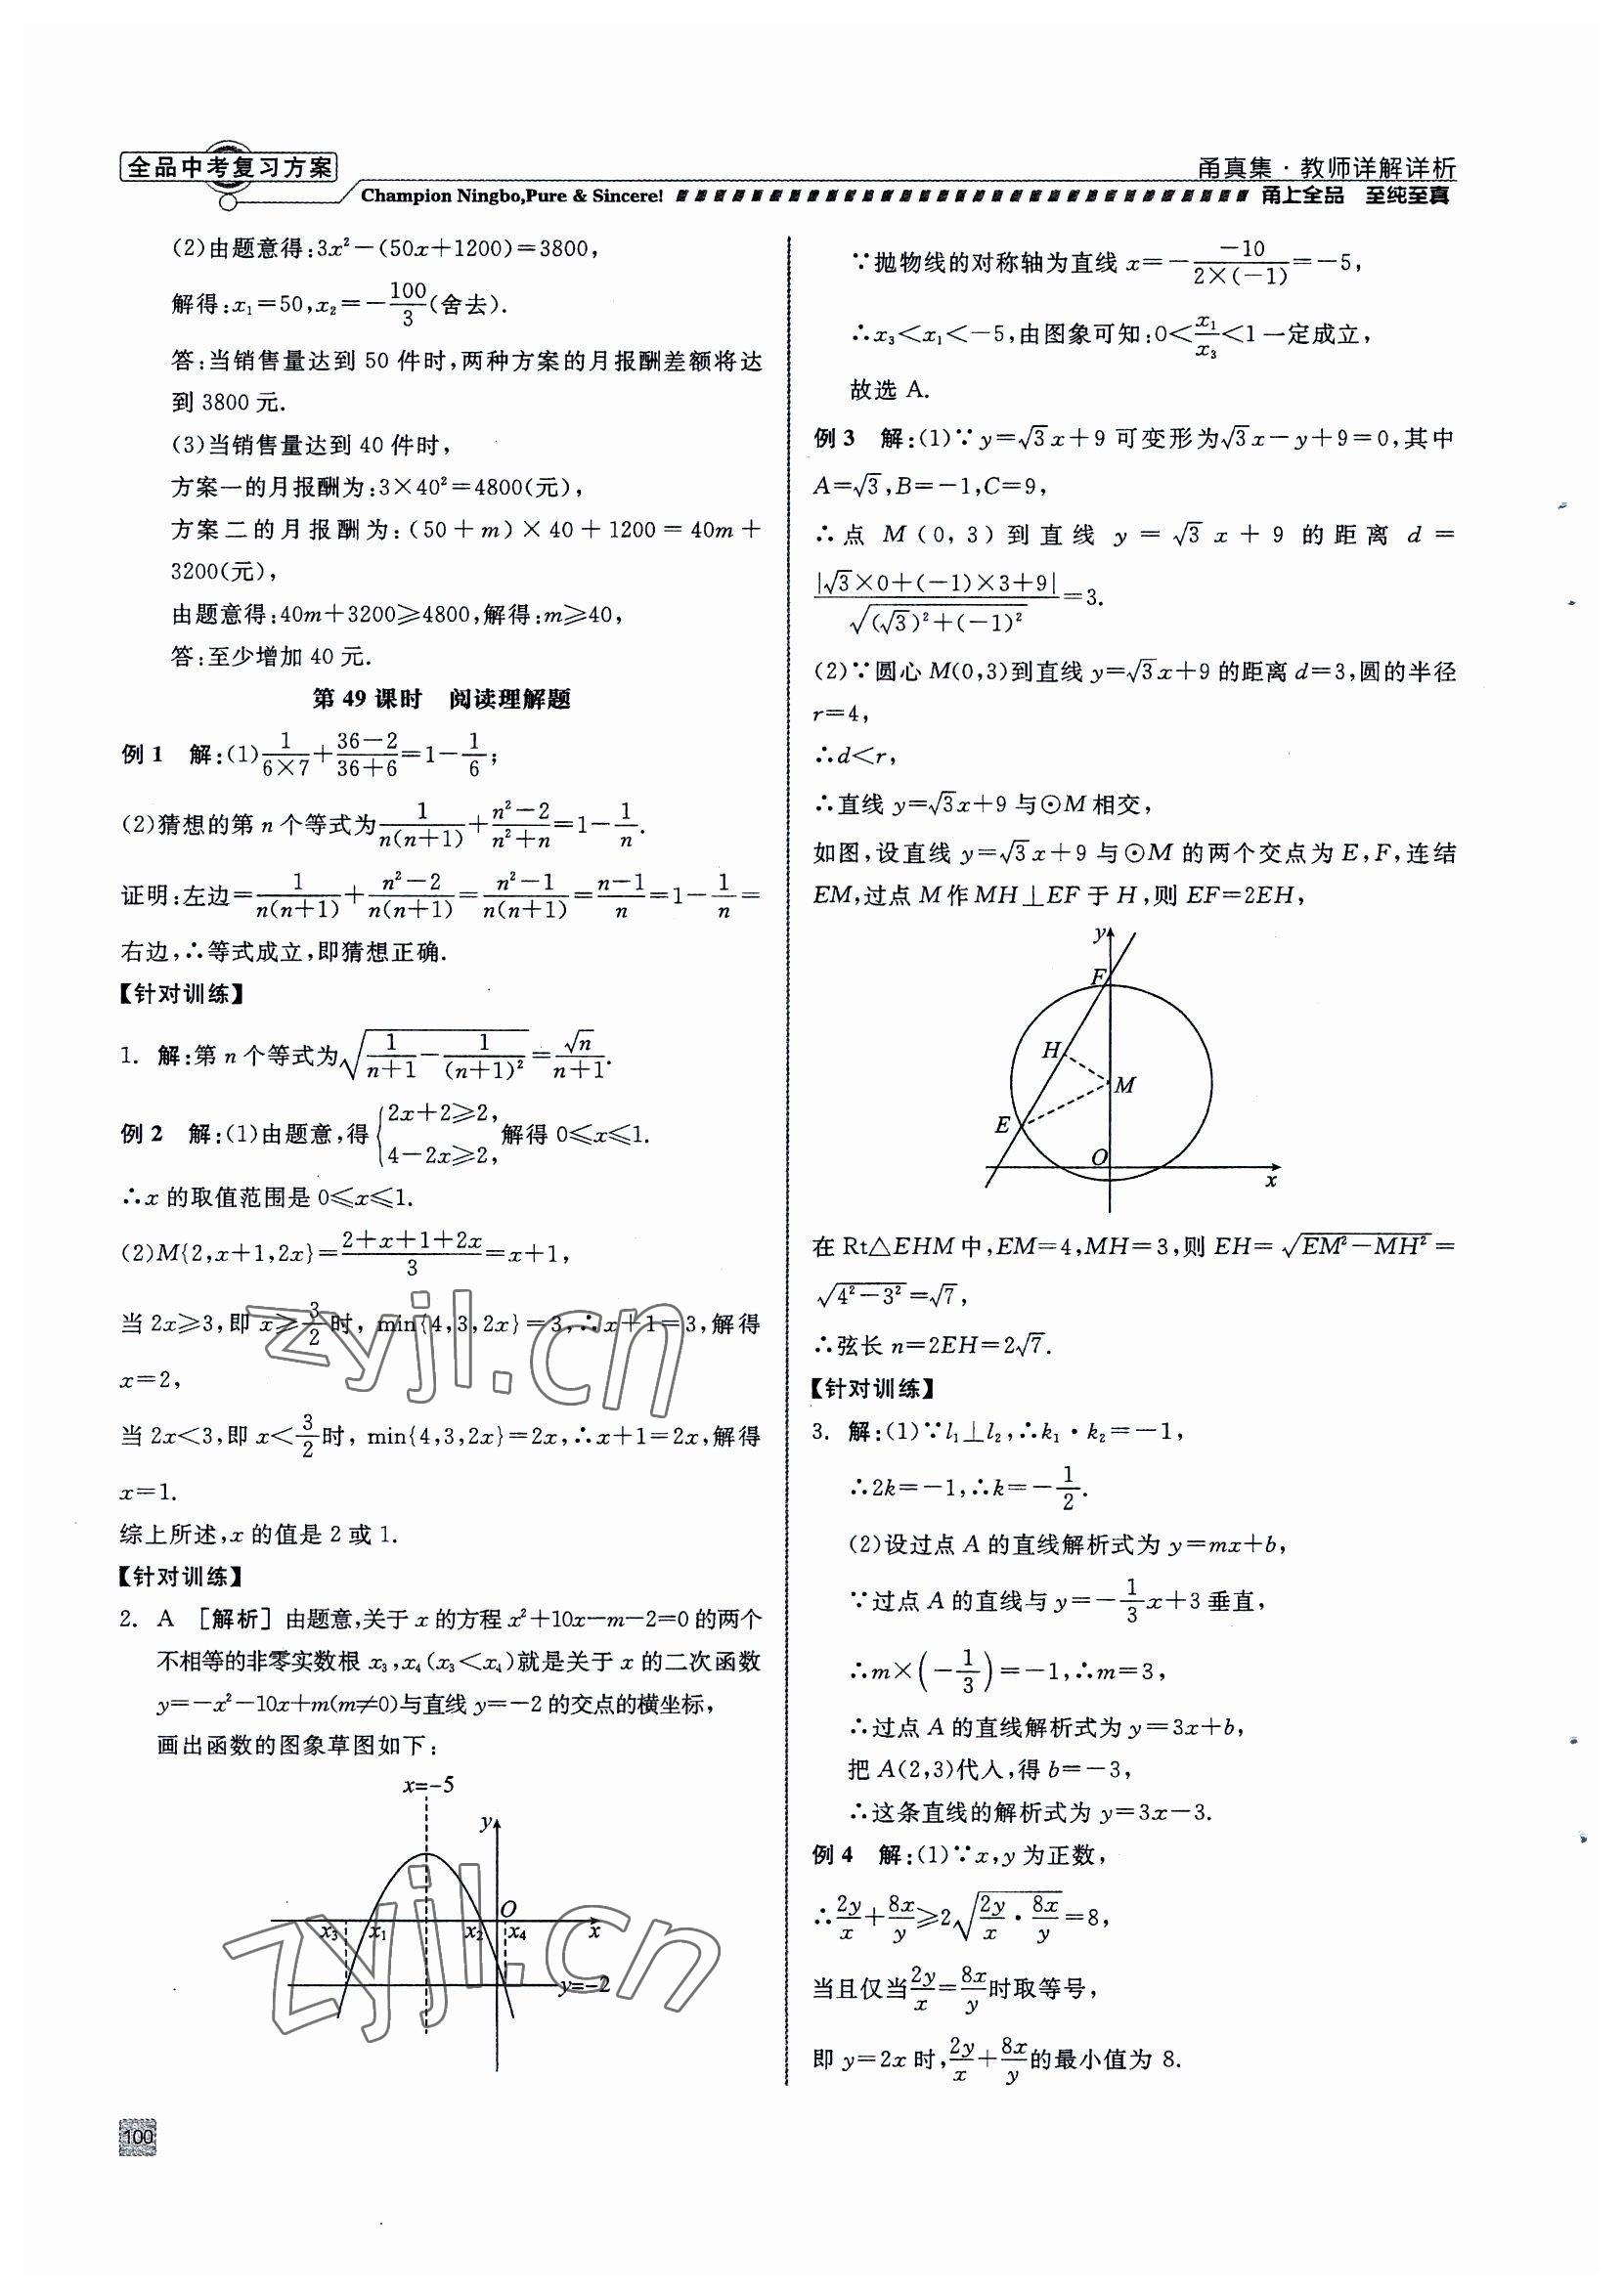 全品中考复习方案
甬真集·教师详解详析
Champion Ningbo,Pure & Sincere!
甬上全品 至纯至真
(2)由题意得:3x²-(50x+1200)=3800,
解得:x₁=50,x₂=-100/3(舍去).
答:当销售量达到 50 件时,两种方案的月报酬差额将达
到 3800 元.
(3)当销售量达到 40 件时,
方案一的月报酬为:3×40²=4800(元),
方案二的月报酬为:(50+m)×40+1200=40m+
3200(元),
由题意得:40m+3200≥4800,解得:m≥40,
答:至少增加 40 元.
第 49 课时 阅读理解题
例 1 解:(1)1/(6×7)+(36-2)/(36+6)=1-1/6;
(2)猜想的第 n 个等式为1/(n(n+1))+(n²-2)/(n²+n)=1-1/n.
证明:左边=1/(n(n+1))+(n²-2)/(n(n+1))=(n²-1)/(n(n+1))=(n-1)/n=1-1/n=
右边,∴等式成立,即猜想正确.
【针对训练】
1. 解:第 n 个等式为√(1/(n+1)-1/(n+1)²)=√n/(n+1).
例 2 解:(1)由题意,得{2x+2≥2, 4-2x≥2, 解得 0≤x≤1.
∴x 的取值范围是 0≤x≤1.
(2)M{2,x+1,2x}=(2+x+1+2x)/3=x+1,
当 2x≥3,即 x≥3/2时, min{4,3,2x}=3,∴x+1=3,解得
x=2,
当 2x<3,即 x<3/2时, min{4,3,2x}=2x,∴x+1=2x,解得
x=1.
综上所述,x 的值是 2 或 1.
【针对训练】
2. A [解析] 由题意,关于 x 的方程 x²+10x-m-2=0 的两个
不相等的非零实数根 x₃,x₄(x₃<x₄)就是关于 x 的二次函数
y=-x²-10x+m(m≠0)与直线 y=-2 的交点的横坐标,
画出函数的图象草图如下:
x=-5
y
O
x₃ x₁ x₂ x₄ x
y=-2
100
∵抛物线的对称轴为直线 x=-(-10)/(2×(-1))=-5,
∴x₃<x₁<-5,由图象可知:0<x₁/x₃<1 一定成立,
故选 A.
例 3 解:(1)∵y=√3x+9 可变形为√3x-y+9=0,其中
A=√3,B=-1,C=9,
∴点 M(0,3)到直线 y=√3x+9 的距离 d=
|√3×0+(-1)×3+9|/√((√3)²+(-1)²)=3.
(2)∵圆心 M(0,3)到直线 y=√3x+9 的距离 d=3,圆的半径
r=4,
∴d<r,
∴直线 y=√3x+9 与⊙M 相交,
如图,设直线 y=√3x+9 与⊙M 的两个交点为 E,F,连结
EM,过点 M 作 MH⊥EF 于 H,则 EF=2EH,
y
F
H
M
E
O
x
在 Rt△EHM 中,EM=4,MH=3,则 EH=√(EM²-MH²)=
√(4²-3²)=√7,
∴弦长 n=2EH=2√7.
【针对训练】
3. 解:(1)∵l₁⊥l₂,∴k₁·k₂=-1,
∴2k=-1,∴k=-1/2.
(2)设过点 A 的直线解析式为 y=mx+b,
∵过点 A 的直线与 y=-1/3x+3 垂直,
∴m×(-1/3)=-1,∴m=3,
∴过点 A 的直线解析式为 y=3x+b,
把 A(2,3)代入,得 b=-3,
∴这条直线的解析式为 y=3x-3.
例 4 解:(1)∵x,y 为正数,
∴2y/x+8x/y≥2√(2y/x·8x/y)=8,
当且仅当2y/x=8x/y时取等号,
即 y=2x 时,2y/x+8x/y的最小值为 8.
zyjl.cn
zyjl.cn